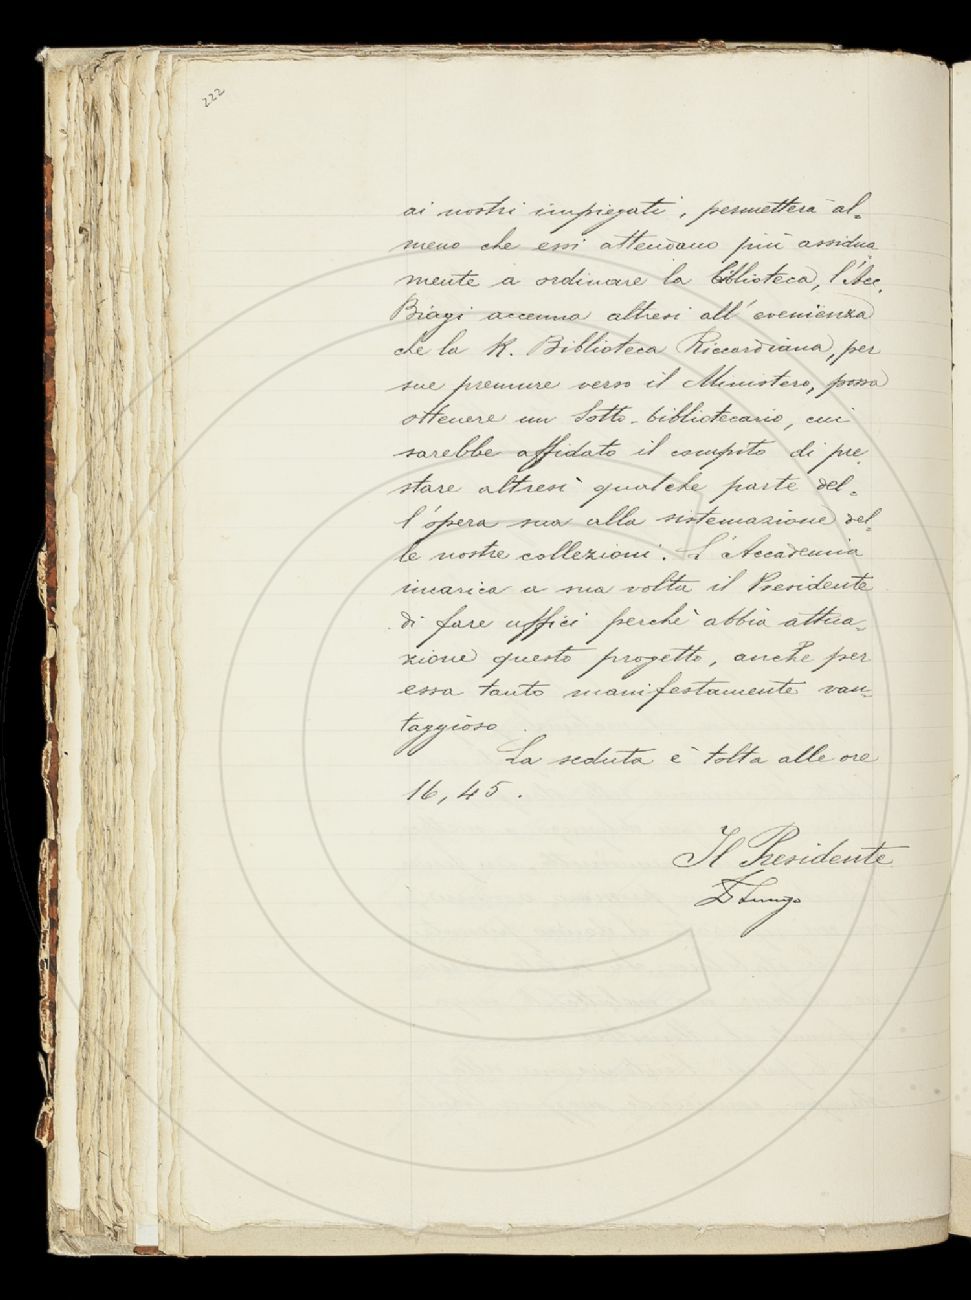 222
ai nostri impiegati, permetterà al-
meno che essi attendano più assidua
mente a ordinare la biblioteca, l'Acc.
Biagi accenna altresì all'evenienza
che la R. Biblioteca Riccardiana, per
sue premure verso il Ministero, possa
ottenere un Sotto-bibliotecario, cui
sarebbe affidato il compito di pre
stare altresì qualche parte del-
l'opera sua alla sistemazione del-
le nostre collezioni. L'Accademia
incarica a sua volta il Presidente
di fare uffici perchè abbia attua-
zione questo progetto, anche per
essa tanto manifestamente van-
taggioso.
La seduta è tolta alle ore
16,45.
Il Presidente
D Lungo